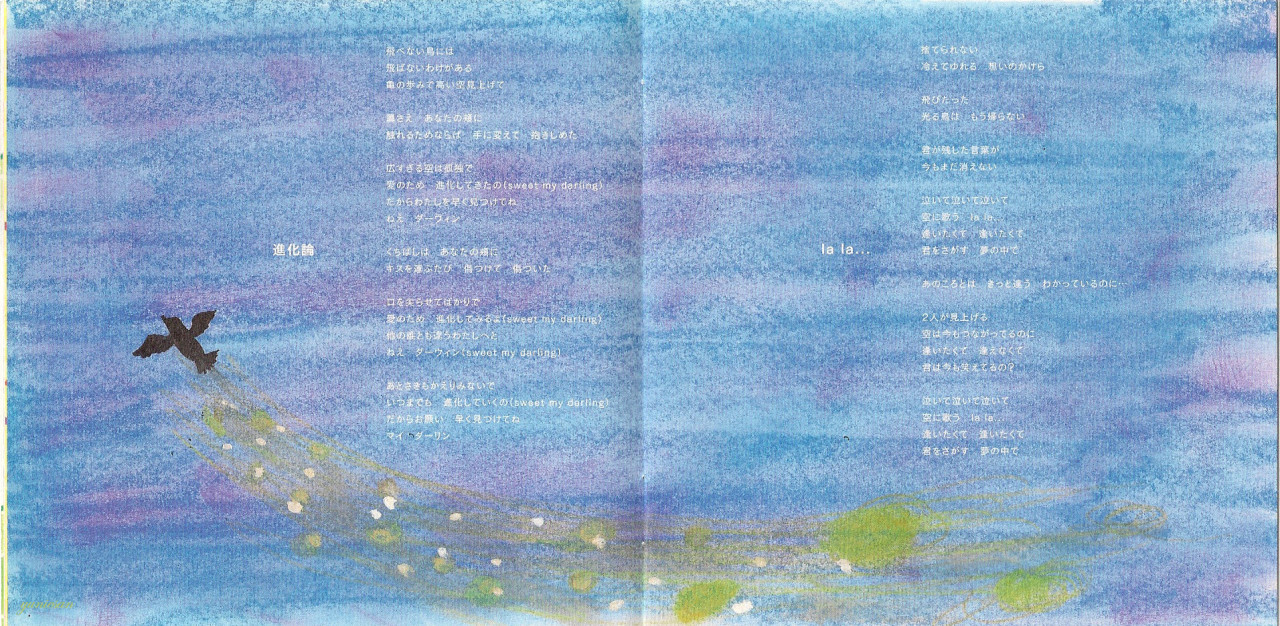 進化論
飛べない鳥には
飛ばないわけがある
亀の歩みで高い空見上げて
翼さえ あなたの頬に
触れるためならば 手に変えて 抱きしめた
広すぎる空は孤独で
愛のため 進化してきたの(sweet my darling)
だからわたしを早く見つけてね
ねえ ダーウィン
くちばしは あなたの頬に
キスを運ぶたび 傷つけて 傷ついた
口をとがらせてばかりで
愛のため 進化してみるよ(sweet my darling)
他の誰とも違うわたしへと
ねえ ダーウィン(sweet my darling)
あとさきもかえりみないで
いつまでも 進化していくの(sweet my darling)
だからお願い 早く見つけてね
マイ ダーリン
la la...
捨てられない
冷えてゆれる 想いのかけら
飛びたった
光る鳥は もう帰らない
君が残した言葉が
今もまだ消えない
泣いて泣いて泣いて
空に歌う la la...
逢いたくて 逢いたくて
君をさがす 夢の中で
あのころとは きっと違う わかっているのに…
2人が見上げる
空は今もつながってるのに
逢いたくて 逢えなくて
君は今も笑えてるの?
泣いて泣いて泣いて
空に歌う la la...
逢いたくて 逢いたくて
君をさがす 夢の中で